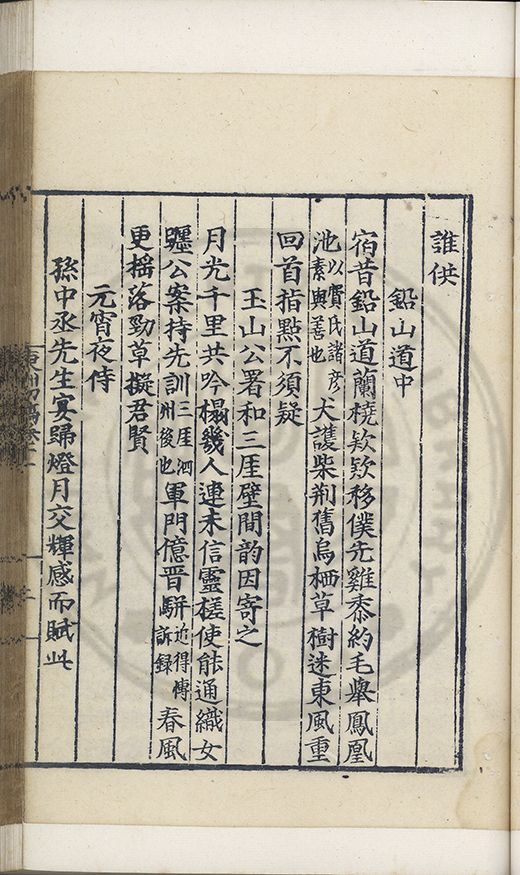 誰供
鉛山道中
宿昔鉛山道蘭橈欵欵移僕先雞黍約毛舉鳳凰
池以費氏諸彦素與善也犬護柴荆舊烏栖草樹迷東風重
回首指點不須疑
玉山公署和三厓壁間韵因寄之
月光千里共吟榻幾人連未信靈槎使能通織女
躔公案持先訓三厓泗州後也軍門憶晉騈近得傳訴録春風
更摇落勁草擬君賢
元宵夜侍
孫中丞先生宴歸燈月交輝感而賦此